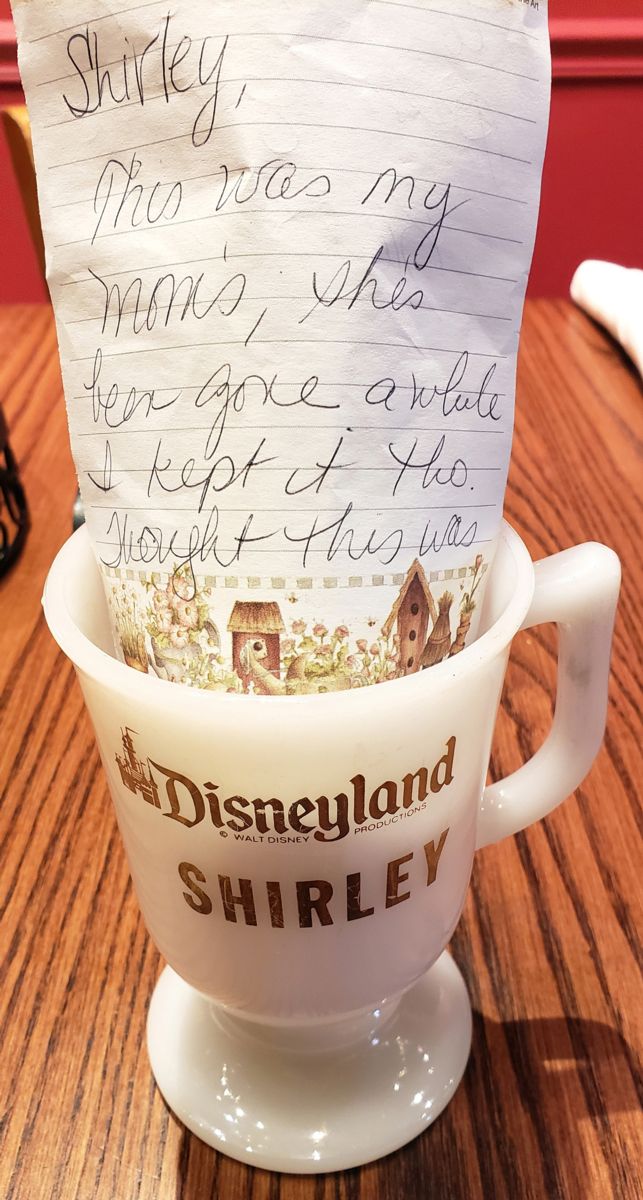 Shirley,
This was my
mom's, she's
been gone a while
I kept it tho.
Thought this was
Disneyland
© WALT DISNEY PRODUCTIONS
SHIRLEY